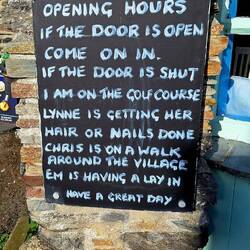 OPENING HOURS
IF THE DOOR IS OPEN
COME ON IN.
IF THE DOOR IS SHUT
I AM ON THE GOLF COURSE
LYNNE IS GETTING HER
HAIR OR NAILS DONE
CHRIS IS ON A WALK
AROUND THE VILLAGE
EM IS HAVING A LAY IN
HAVE A GREAT DAY